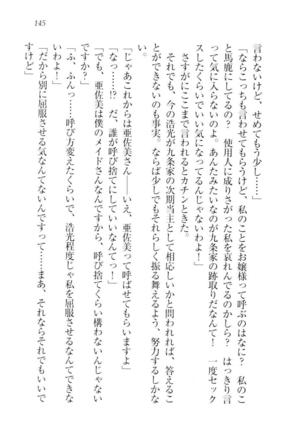 145
言わないけど、せめてもう少し……」
「ならこっちも言わせてもらうけど、私のことをお嬢様って呼ぶのはなに？　私のこ
と馬鹿にしてるの？　使用人に成り下がった私を哀れんでるのかしら？　はっきり言
って気に入らないのよ。あんたみたいなのが九条家の跡取りだなんて！　一度セック
スしたくらいでいい気になってるんじゃないわよ！」
さすがにここまで言われるとカチンときた。
それでも、今の浩光が九条家の次期当主として相応しいかと問われれば、答えるこ
とができないのも事実。ならば少しでもそれらしく振る舞えるよう、努力するしかな
い。
「じゃあこれからは亜佐美さん――いえ、亜佐美って呼ばせてもらいますよ」
「なっ……!?　だ、誰が呼び捨てにしていいなんてっ！」
「でも、亜佐美は僕のメイドさんなんですから、呼び捨てくらい構わないんじゃ」
「ふ、ふんっ……呼び方変えたくらいで、浩光程度じゃ私を屈服させるなんてできな
いわよ！」
「だから別に屈服させる気なんてないんですって……まあ、それならそれでもいいで
すけど」